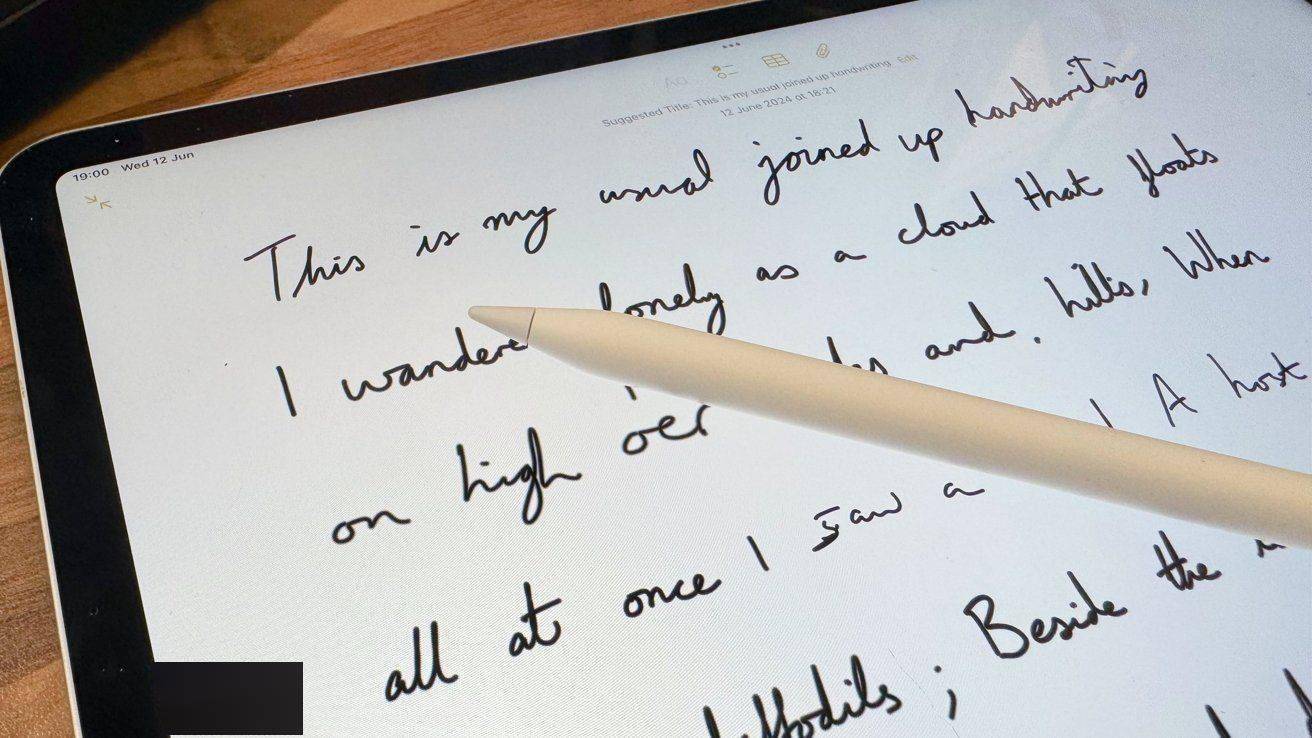 19:00 Wed 12 Jun
Suggested Title: This is my usual joined up handwriting Edit
12 June 2024 at 18:21
This is my usual joined up handwriting
I wandere lonely as a cloud that floats
on high o'er and. hills, When
all at once I saw a A host
Beside the